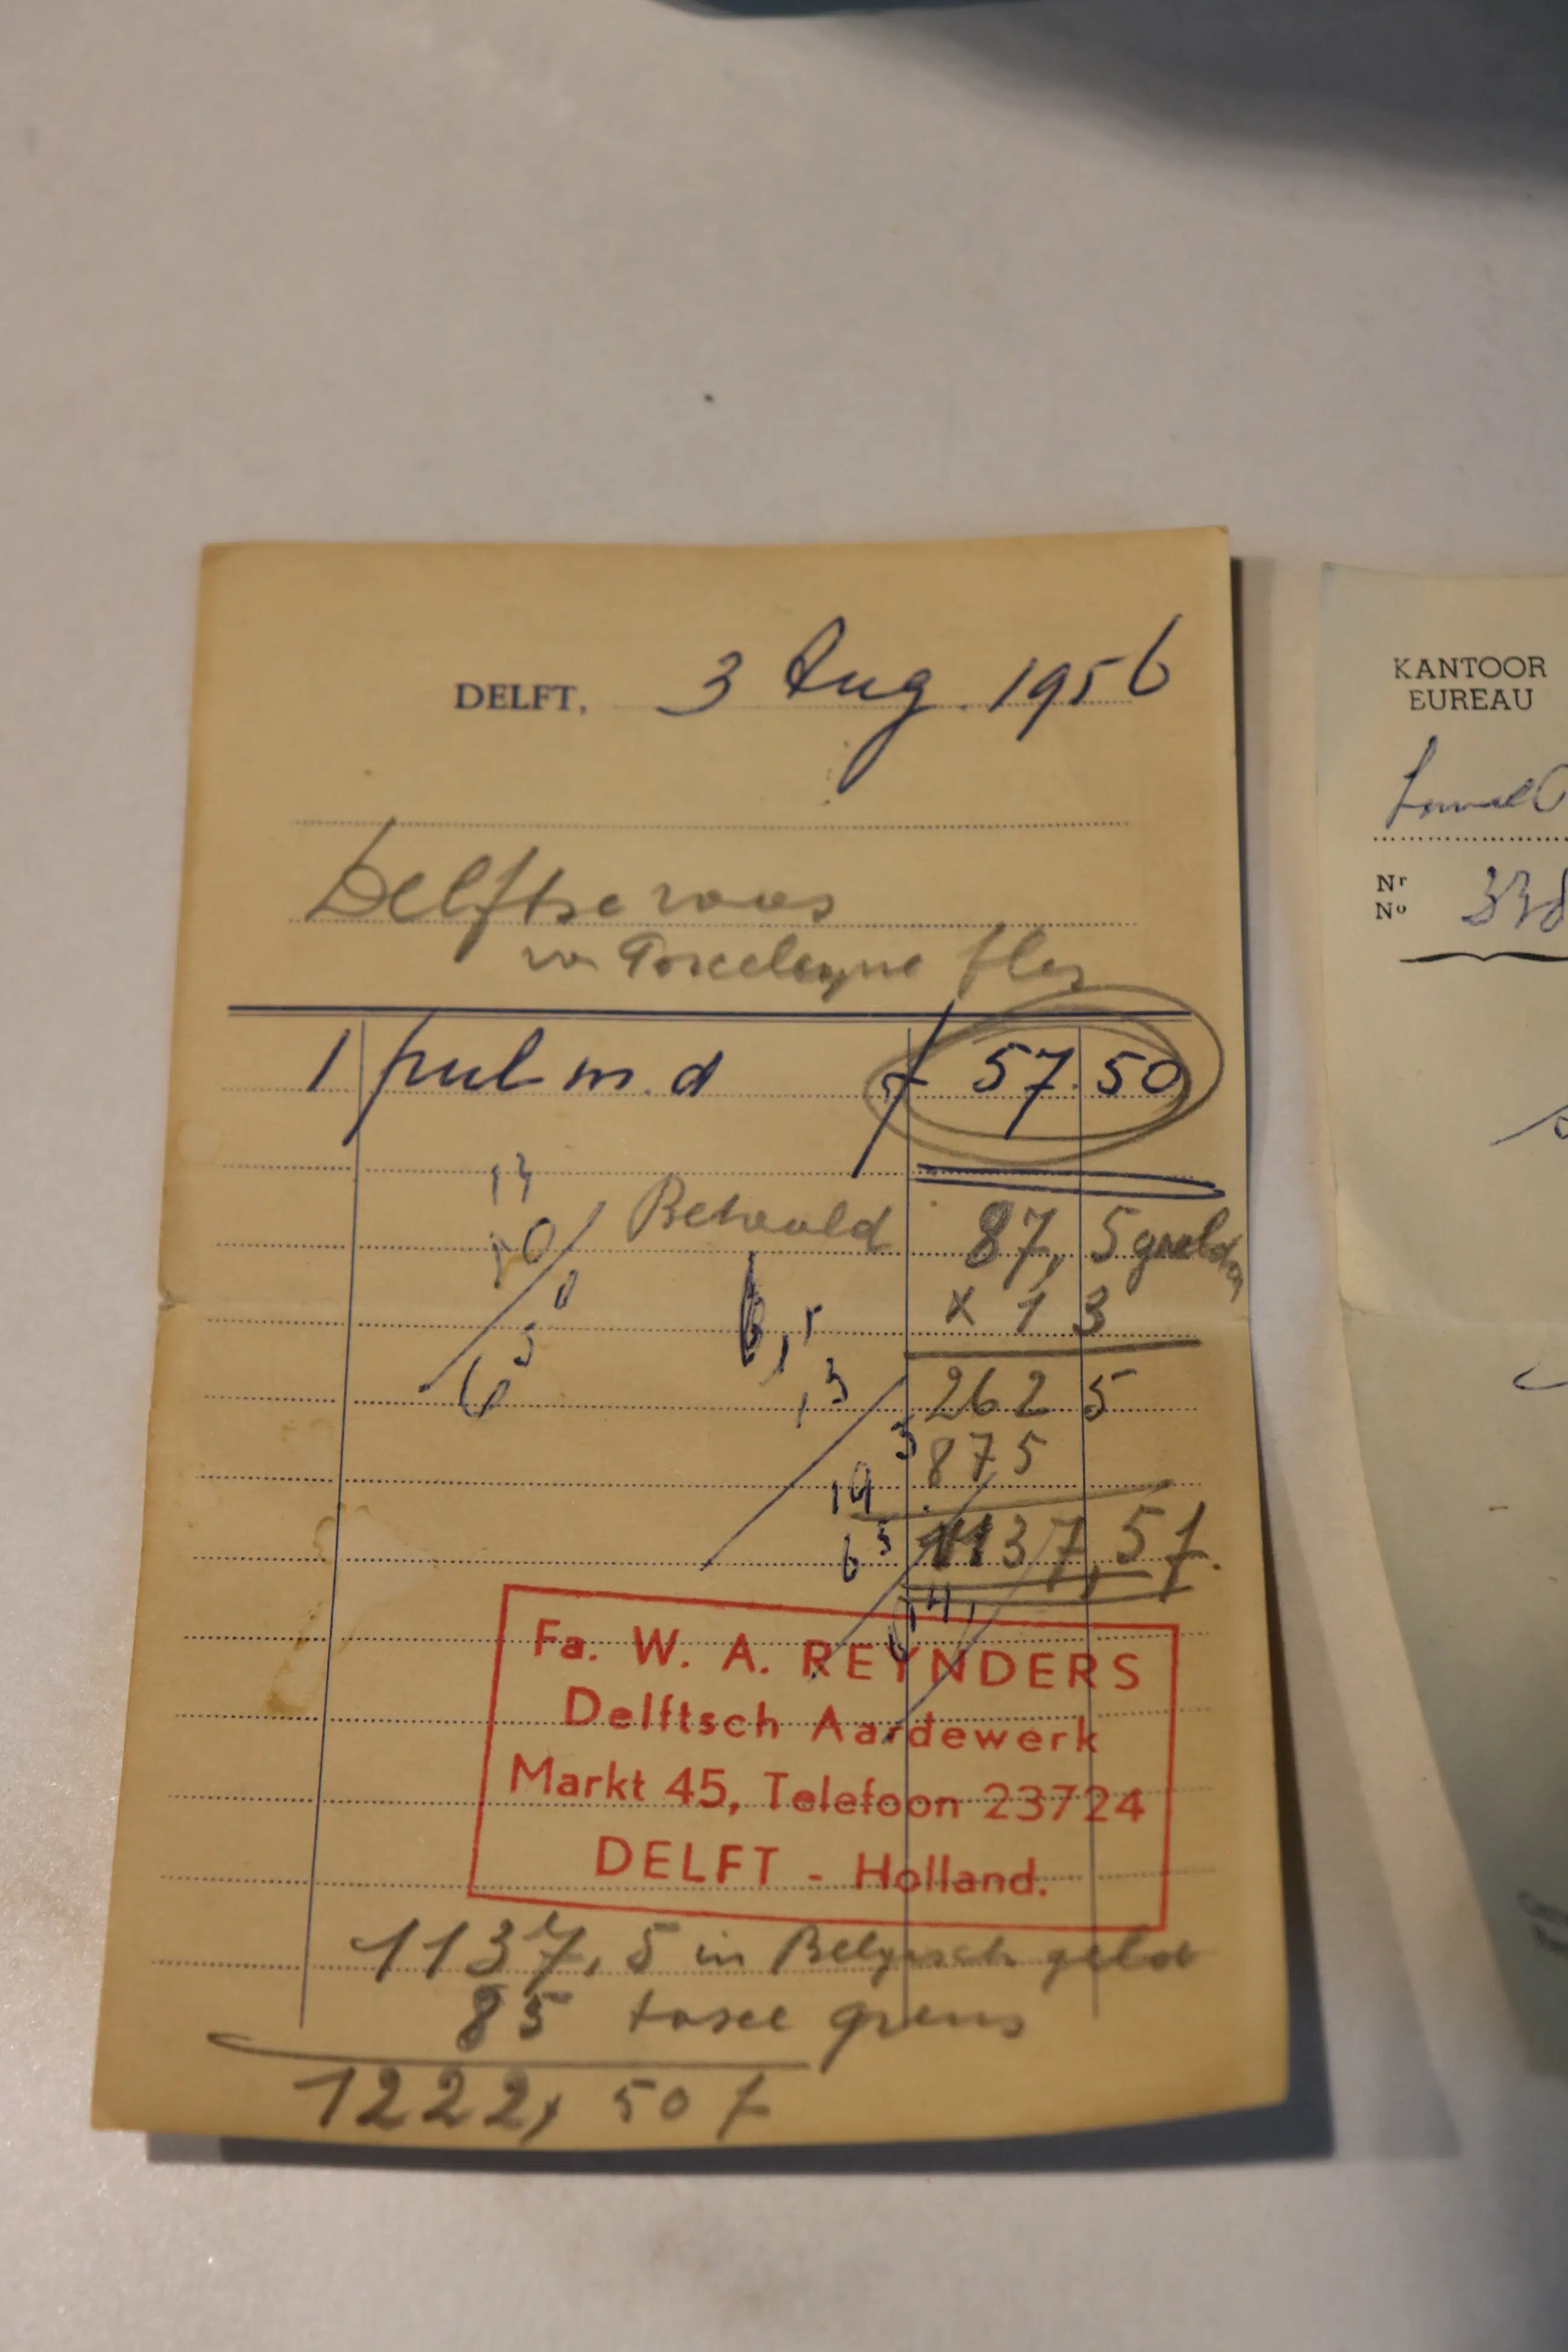 DELFT, 3 Aug. 1956
Delftse vaas
van Porceleyne fles
1 pul m.d f 57.50
Betaald 87,5 gulden
x 13
262 5
875
1137,5 f.
Fa. W. A. REYNDERS
Delftsch Aardewerk
Markt 45, Telefoon 23724
DELFT - Holland.
1137,5 in Belgisch geld
85 taxe grens
1222,50 f
KANTOOR
BUREAU
Nr
No 338